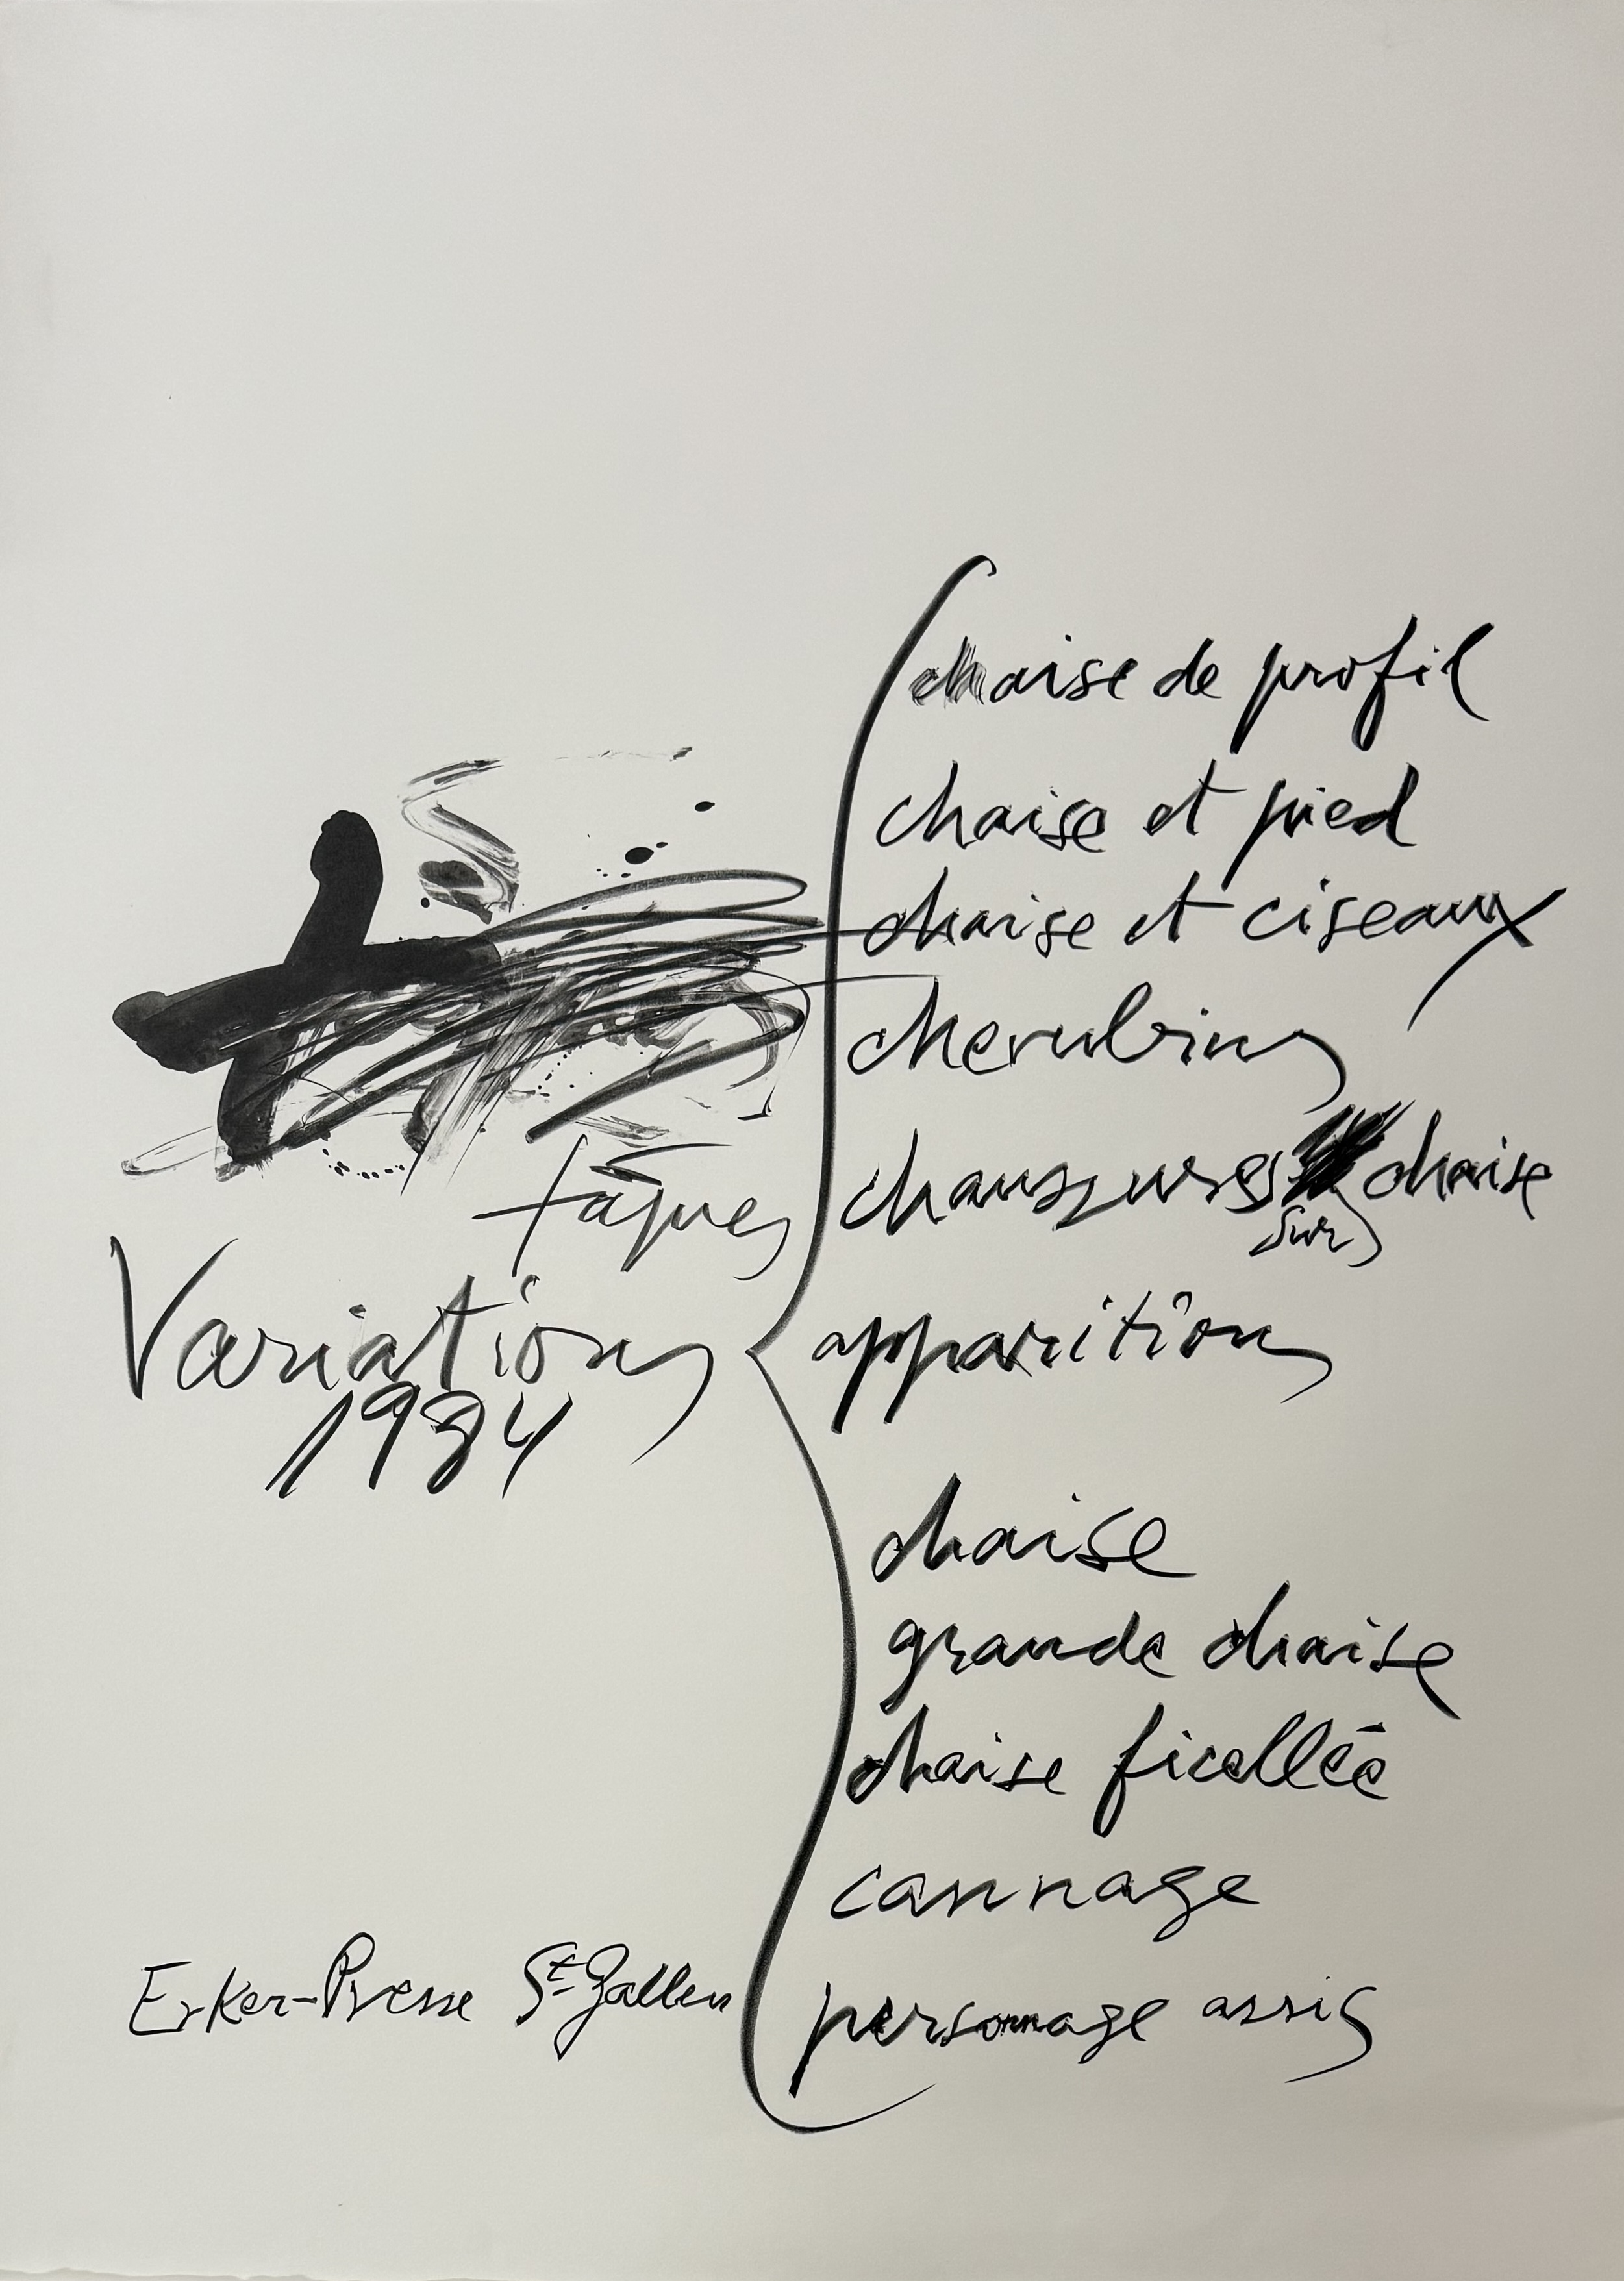 chaise de profil
chaise et pied
chaise et ciseaux
cherubins
chaussures sur chaise
tàpies
Variations
1984
apparitions
chaise
grande chaise
chaise ficellée
cannage
personnage assis
Erker-Presse St Gallen